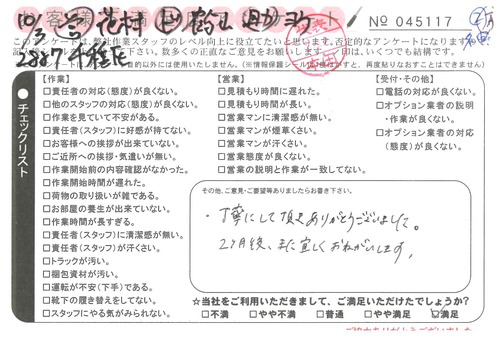 No 045117
このアンケートは、弊社作業スタッフのレベル向上に役立てたいと思います。否定的なアンケートになりますが、
チェックリスト
【作業】
□責任者の対応(態度)が良くない。
□他のスタッフの対応(態度)が良くない。
□作業を見ていて不安がある。
□責任者(スタッフ)に好感が持てない。
□お客様への挨拶が出来ていない。
□ご近所への挨拶・気遣いが無い。
□作業開始前の内容確認がなかった。
□作業開始時間が遅れた。
□荷物の取り扱いが雑である。
□お部屋の養生が出来ていない。
□作業時間が長すぎる。
□責任者(スタッフ)に清潔感が無い。
□責任者(スタッフ)が汗くさい。
□トラックが汚い。
□梱包資材が汚い。
□運転が不安(下手)である。
□靴下の履き替えをしてない。
□スタッフにやる気がみられない。
【営業】
□見積もり時間に遅れた。
□見積もり時間が長い。
□営業マンに清潔感が無い。
□営業マンが煙草くさい。
□営業マンが汗くさい。
□営業態度が良くない。
□営業の説明と作業が一致してない。
【受付・その他】
□電話の対応が良くない。
□オプション業者の説明
・作業が良くない。
□オプション業者の対応
(態度)が良くない。
その他、ご意見・ご要望等ありましたらお書き下さい。
・丁寧にして頂きありがとうございました。
2ヶ月後、また宜しくおねがいします。
☆当社をご利用いただきまして、ご満足いただけたでしょうか?
□不満 □やや不満 □普通 □やや満足 □満足